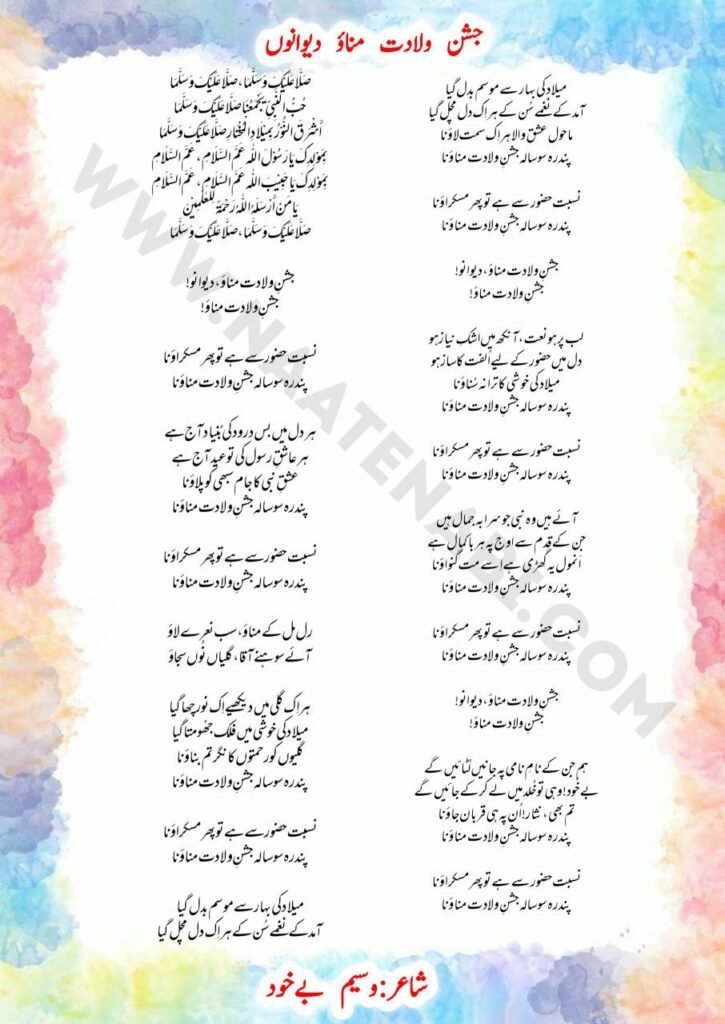 جشن ولادت مناؤ دیوانوں
صَلَّا عَلَیْکَ وَسَلَّمَا، صَلَّا عَلَیْکَ وَسَلَّمَا
حُبُّ النَّبِیِّ یَجْمَعُنَا صَلَّا عَلَیْکَ وَسَلَّمَا
أَشْرَقَ النُّوْرُ بِمِیْلَادِ الْمُخْتَارِ صَلَّا عَلَیْکَ وَسَلَّمَا
بِمَوْلِدِکَ یَا رَسُوْلَ اللّٰہ عَمَّ السَّلَامِ، عَمَّ السَّلَامِ
بِمَوْلِدِکَ یَا حَبِیْبَ اللّٰہ عَمَّ السَّلَامِ، عَمَّ السَّلَامِ
یَا مَنْ أَرْسَلَهُ اللّٰهُ رَحْمَةً لِّلْعٰلَمِیْنْ
صَلَّا عَلَیْکَ وَسَلَّمَا، صَلَّا عَلَیْکَ وَسَلَّمَا
جشنِ ولادت مناؤ، دیوانو!
جشنِ ولادت مناؤ!
نسبت حضور سے ہے تو پھر مسکراؤ نا
پندرہ سو سالہ جشنِ ولادت مناؤ نا
ہر دل میں بس درود کی بُنیاد آج ہے
ہر عاشقِ رسول کی تو عید آج ہے
عشقِ نبی کا جام سبھی کو پلاؤ نا
پندرہ سو سالہ جشنِ ولادت مناؤ نا
نسبت حضور سے ہے تو پھر مسکراؤ نا
پندرہ سو سالہ جشنِ ولادت مناؤ نا
رل مل کے مناؤ، سب نعرے لاؤ
آئے سوہنے آقا، گلیاں نُوں سجاؤ
ہر اِک گلی میں دیکھیے اِک نور چھا گیا
میلاد کی خوشی میں فلک جھُومتا گیا
گلیوں کو رحمتوں کا نگر تم بناؤ نا
پندرہ سو سالہ جشنِ ولادت مناؤ نا
نسبت حضور سے ہے تو پھر مسکراؤ نا
پندرہ سو سالہ جشنِ ولادت مناؤ نا
میلاد کی بہار سے موسم بدل گیا
آمد کے نغمے سُن کے ہر اک دل مچل گیا
میلاد کی بہار سے موسم بدل گیا
آمد کے نغمے سُن کے ہر اک دل مچل گیا
ماحول عشق والا ہر اک سمت لاؤ نا
پندرہ سو سالہ جشنِ ولادت مناؤ نا
نسبت حضور سے ہے تو پھر مسکراؤ نا
پندرہ سو سالہ جشنِ ولادت مناؤ نا
جشنِ ولادت مناؤ، دیوانو!
جشنِ ولادت مناؤ!
لب پر ہو نعت، آنکھ میں اشکِ نیاز ہو
دل میں حضور کے لیے اُلفت کا ساز ہو
میلاد کی خوشی کا ترانہ سُناؤ نا
پندرہ سو سالہ جشنِ ولادت مناؤ نا
نسبت حضور سے ہے تو پھر مسکراؤ نا
پندرہ سو سالہ جشنِ ولادت مناؤ نا
آئے ہیں وہ نبی جو سراپہ جمال ہیں
جن کے قدم سے اوج پہ ہر با کمال ہے
اَنمول یہ گھڑی ہے اِسے مت گنواؤ نا
پندرہ سو سالہ جشنِ ولادت مناؤ نا
نسبت حضور سے ہے تو پھر مسکراؤ نا
پندرہ سو سالہ جشنِ ولادت مناؤ نا
جشنِ ولادت مناؤ، دیوانو!
جشنِ ولادت مناؤ!
ہم جن کے نامِ نامی پہ جانیں لُٹائیں گے
بے خود! وہی تو خُلد میں لے کر کے جائیں گے
تم بھی، نثار! اُن پہ ہی قربان جاؤ نا
پندرہ سو سالہ جشنِ ولادت مناؤ نا
نسبت حضور سے ہے تو پھر مسکراؤ نا
پندرہ سو سالہ جشنِ ولادت مناؤ نا
شاعر: وسیم بے خود
WWW.NAATENABI.COM